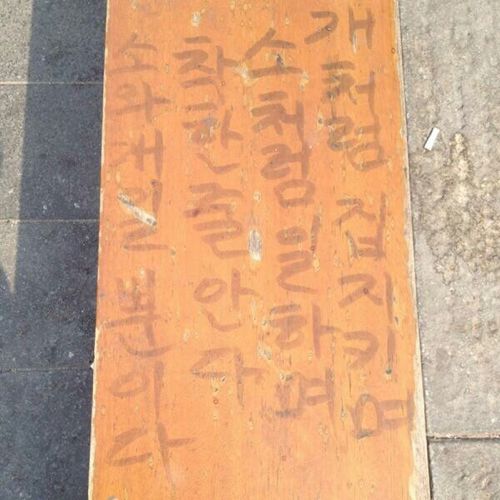 개처럼 집지키며
소처럼 일하며
착한줄 안다
소와개일 뿐이다